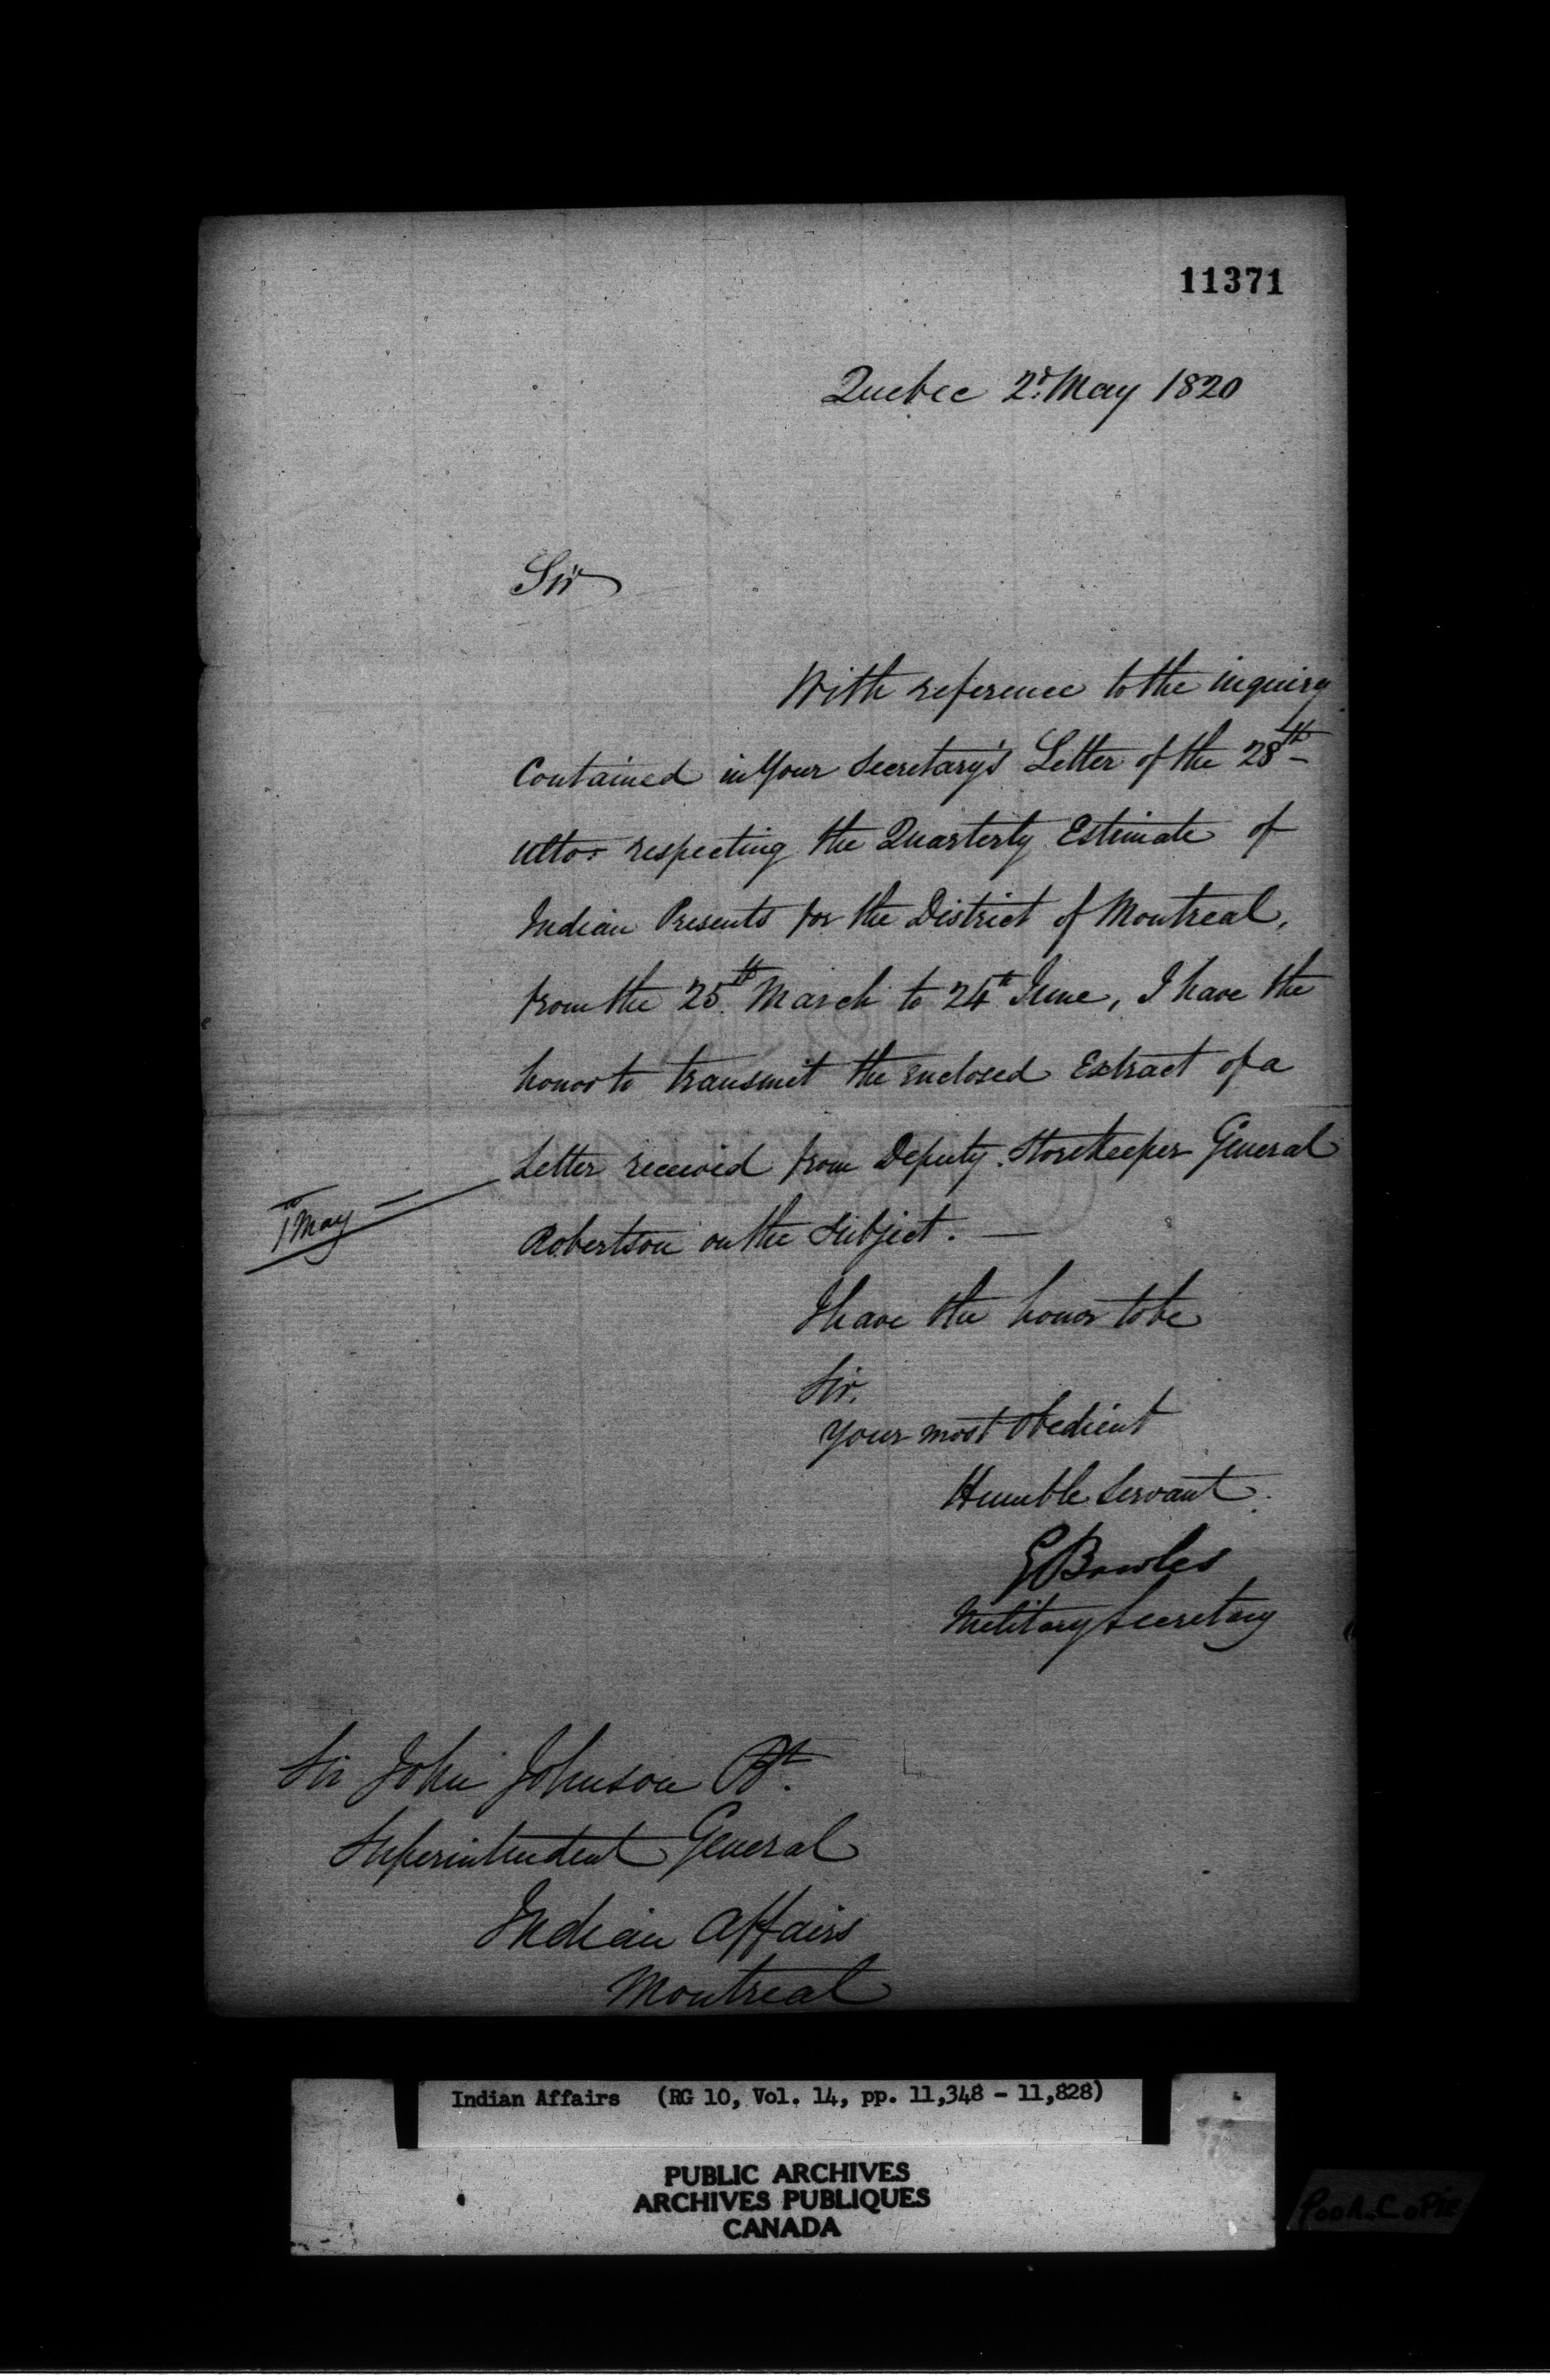 11371
Quebec 2d. May 1820
Sir
With reference to the inquiry
Contained in Your Secretary's Letter of the 28th
Ulto. respecting the Quarterly Estimate of
Indian Presents for the District of Montreal,
from the 25th March to 24th June, I have the
honor to transmit the enclosed Extract of a
Letter received from Deputy Storekeeper General
1st May
Robertson on the Subject. —
I have the honor to be
Sir.
Your most Obedient
Humble Servant.
G Bowles
Military Secretary
Sir John Johnson Bt.
Superintendent General
Indian Affairs
Montreal
Indian Affairs (RG 10, Vol. 14, pp. 11,348 - 11,828)
PUBLIC ARCHIVES
ARCHIVES PUBLIQUES
CANADA
Poor Copie